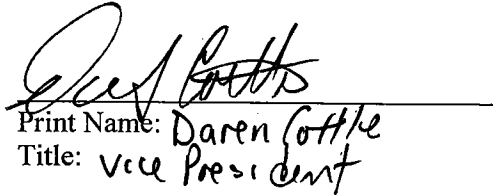 Print Name: Daren Cottle
Title: Vice President